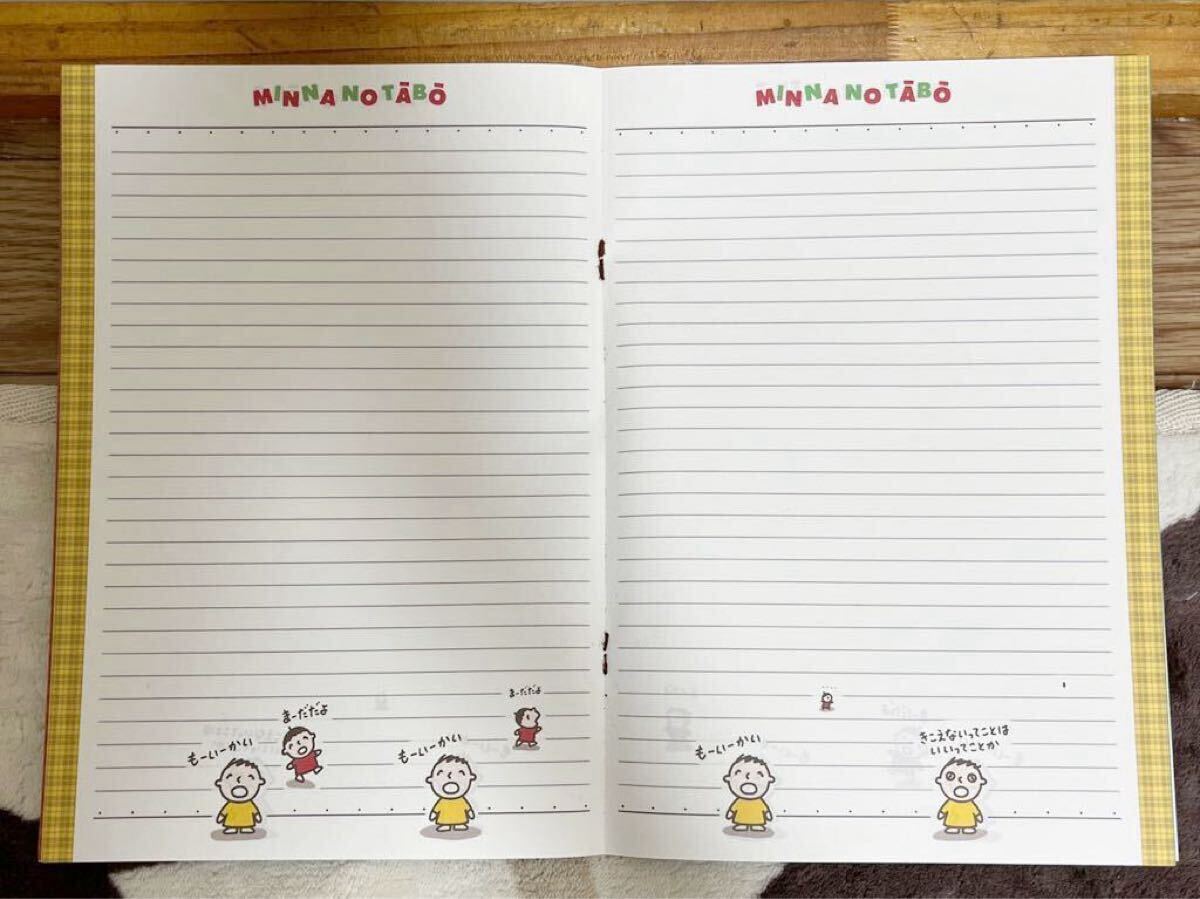 MINNA NO TĀBŌ
MINNA NO TĀBŌ
まーだだよ
もーいーかい
まーだだよ
もーいーかい
・・・・
もーいーかい
きこえないってことは
いいってことか